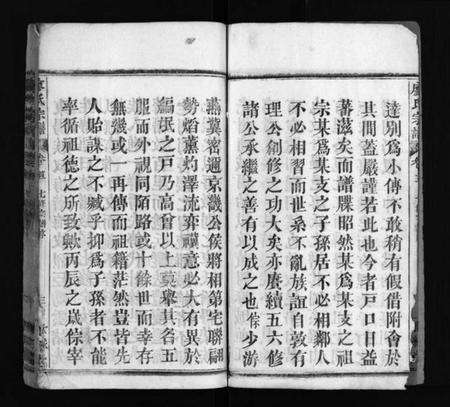 達別爲小傳不敢稍有假借附會於
其間蓋嚴謹若此也今者戸口日益
蕃滋矣而譜牒昭然某爲某支之祖
宗某爲某支之子孫居不必相鄰人
不必相習而世系不亂族誼自敦有
心創始修之功大矣亦賡續五六修
諸公承繼之善有以成之也𠊓少游
燕冀密邇京畿公侯將相第宅聯翩
勢焰薰灼澤流弈禩意必大有異於
編氓之戸乃高曾以上莫舉其名五
服而外視同陌路或十餘世而幸存
無幾或一再傳而祖籍茫然豈皆先
人貽謀之不臧乎抑爲子孫者不能
率循祖德之所致歟丙辰之歳𠊓宰
氏宗譜